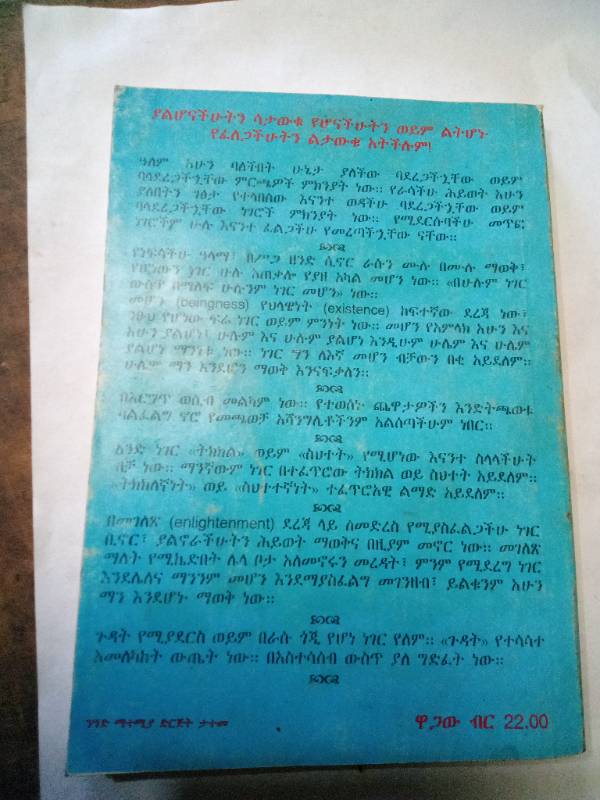 ያልሆናችሁትን ሳታውቁ የሆናችሁትን ወይም ልትሆኑ
የፈለጋችሁትን ልታውቁ አትችሉም!
ዓለም አሁን ባለችበት ሁኔታ ያለችው ባደረጋችኗቸው ወይም
ባላደረጋችኗቸው ምርጫዎች ምክንያት ነው። የራሳችሁ ሕይወት አሁን
ያለበትን ገፅታ የተላበሰው እናንተ ወዳችሁ ባደረጋችኗቸው ወይም
ባላደረጋችኗቸው ነገሮች ምክንያት ነው። የሚደርሱባችሁ መጥፎ
ነገሮችም ሁሉ እናንተ ፈልጋችሁ የመረጣችኗቸው ናቸው።
የነፍሳችሁ ዓላማ፣ በሥጋ ዘንድ ሲኖር ራሱን ሙሉ በሙሉ ማወቅ፣
የሆነውን ነገር ሁሉ አጠቃሎ የያዘ አካል መሆን ነው። «በሁሉም ነገር
ውስጥ በማለፍ ሁሉንም ነገር መሆን» ነው።
መሆን (beingness) የህላዊነት (existence) ከፍተኛው ደረጃ ነው፣
ንፁህ የሆነው ፍሬ ነገር ወይም ምንነት ነው። መሆን የአምላክ አሁን እና
አሁን ያልሆነ፣ ሁሉም እና ሁሉም ያልሆነ እንዲሁም ሁሌም እና ሁሌም
ያልሆነ ማንነቱ ነው። ነገር ግን ለእኛ መሆን ብቻውን በቂ አይደለም።
ሁሌም ማን እንደሆን ማወቅ እንናፍቃለን።
በእርግጥ ወሲብ መልካም ነው። የተወሰኑ ጨዋታዎችን እንድትጫወቱ
ባልፈልግ ኖሮ የመጫወቻ አሻንግሊቶችንም አልሰጣችሁም ነበር።
አንድ ነገር «ትክክል» ወይም «ስህተት» የሚሆነው እናንተ ስላላችሁት
ብቻ ነው። ማንኛውም ነገር በተፈጥሮው ትክክል ወይ ስህተት አይደለም።
«ትክክለኛነት» ወይ «ስህተተኛነት» ተፈጥሮአዊ ልማድ አይደለም።
በመገለጽ (enlightenment) ደረጃ ላይ ለመድረስ የሚያስፈልጋችሁ ነገር
ቢኖር፣ ያልኖራችሁትን ሕይወት ማወቅና በዚያም መኖር ነው። መገለጽ
ማለት የሚኬድበት ሌላ ቦታ አለመኖሩን መረዳት፣ ምንም የሚደረግ ነገር
እንደሌለና ማንንም መሆን እንደማያስፈልግ መገንዘብ፣ ይልቁንም አሁን
ማን እንደሆኑ ማወቅ ነው።
ጉዳት የሚያደርስ ወይም በራሱ ጎጂ የሆነ ነገር የለም። «ጉዳት» የተሳሳተ
አመለካከት ውጤት ነው። በአስተሳሰብ ውስጥ ያለ ግድፈት ነው።
ንግድ ማተሚያ ድርጅት ታተመ
ዋጋው ብር 22.00